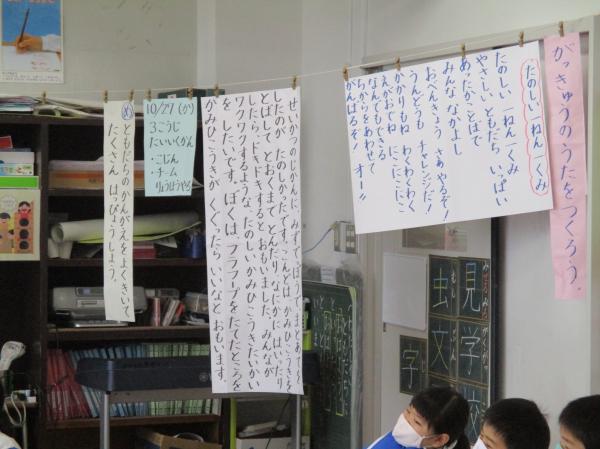 がっきゅうのうたをつくろう。
たのしい 一ねん一くみ
たのしい 一ねん一くみ
やさしい ともだち いっぱい
あったかことばで
みんな なかよし
おべんきょう さあ やるぞ！
うんどうも チャレンジだ！
かかりもね わくわくわく
えがおでね にこにこにこ
なんでもできる
ちからをあわせて
がんばるぞ！ オー！！
せいかつのじかんに みずでっぽうで まとあてを
したのが たのしかったです。こんどは、かみひこうきを
とばして とおくまで とんだり なにかに はいったり
したら、ドキドキすると おもいました。みんなが
ワクワクするような たのしい かみひこうきたいかい
を したいです。ぼくは、フラフープをたてたところを
かみひこうきが くぐったら いいなと おもいます。
10/27(か)
3こうじ
たいいくかん
・こじん
・チーム
りょうほうやる
め ともだちのかんがえをよくきいて
たくさん はっぴょうしよう。
見学校
虫文字